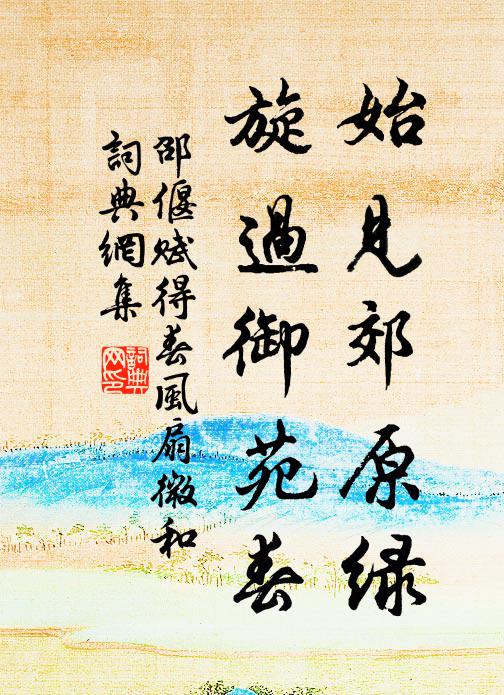 始見郊原緑
旋過御苑春
邵偃赋得春風扇微和
詞典網集
詞典
网印